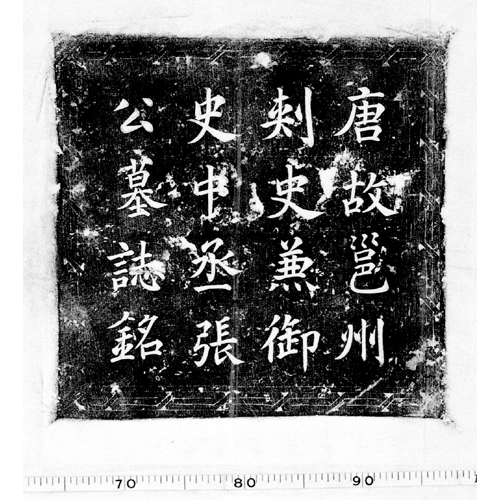 唐故邕州
刾史兼御
史中丞張
公墓誌銘
70 80 90